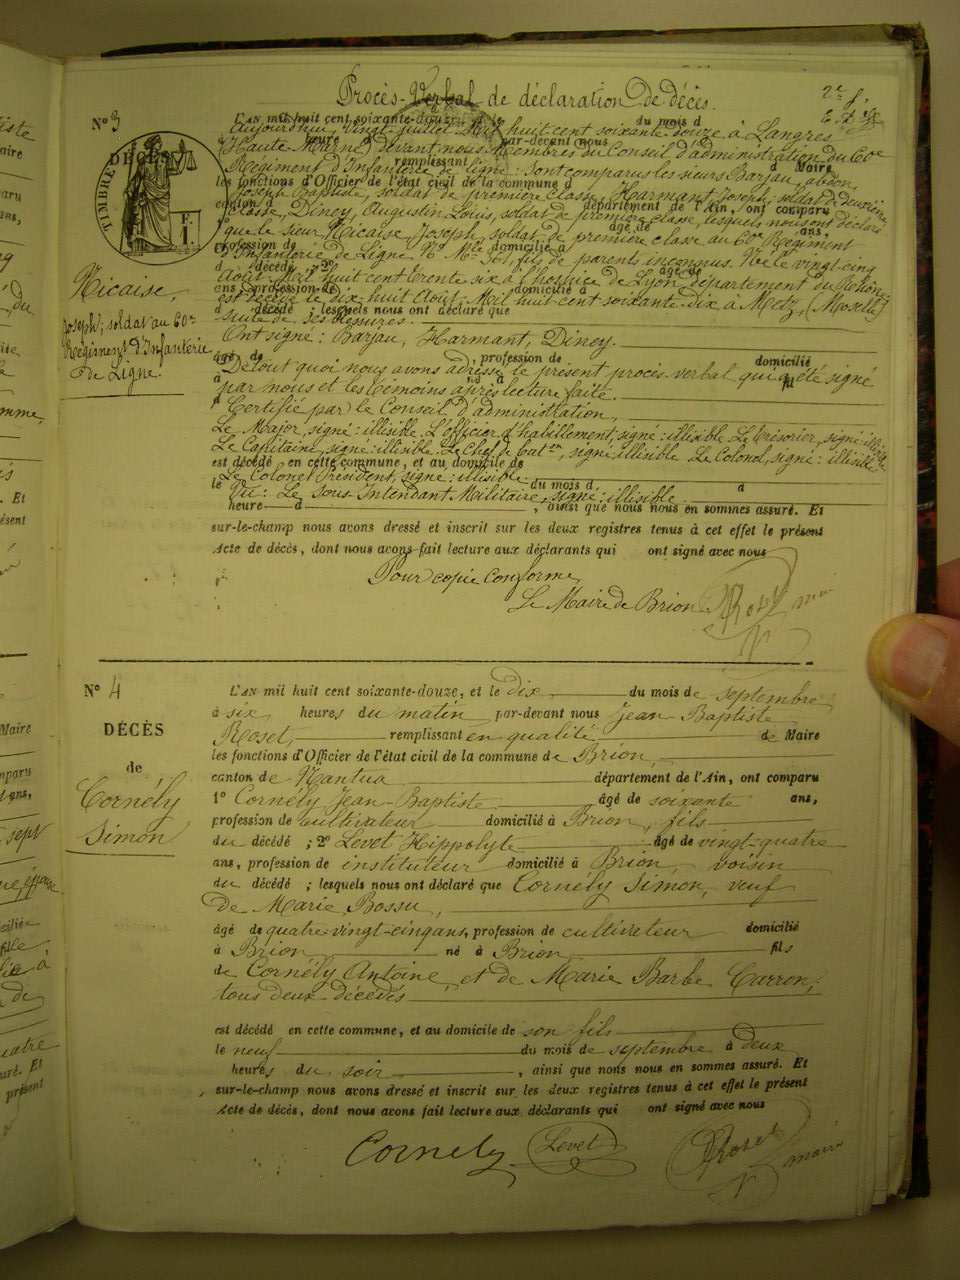 Procès-Verbal de déclaration de décès.
N° 3
L'AN mil huit cent soixante-douze, et le du mois d
Aujourd'hui, vingt juillet Mil huit cent soixante douze à Langres
heure par-devant nous
(Haute Marne) devant nous Membres du Conseil d'administration du 60e
remplissant d Maire
Régiment d'Infanterie de ligne: Sont comparus les sieurs Barjau,
les fonctions d'Officier de l'état civil de la commune d
Joseph Baptiste, soldat de première classe, Harmant Joseph, soldat de deuxième
canton d département de l'Ain, ont comparu
classe, Diney, Augustin Louis, soldat de première classe, lesquels nous ont déclaré
1° âgé de ans,
que le sieur Nicaise, Joseph, soldat de première classe au 60e Régiment
profession de domicilié à
d'Infanterie de Ligne N° Mle 361, fils de parents inconnus. Né le vingt cinq
d décédé ; 2° âgé de
Août Mil huit cent trente six à l'hospice de Lyon département du Rhône
ans, profession de domicilié à
est décédé le dix huit Août Mil huit cent soixante dix à Metz, (Moselle)
d décédé ; lesquels nous ont déclaré que
suite de ses blessures.
Ont signé: Barjau, Harmant, Diney.
âgé de , profession de domicilié
De tout quoi nous avons adressé le présent procès verbal qui a été signé
à né à fils
par nous et les témoins après lecture faite.
d
Certifié par le Conseil d'administration,
Le Major, signé: illisible. L'officier d'habillement, signé: illisible Le trésorier, signé: illisible
Le Capitaine, signé: illisible. Le Chef de Baton, signé illisible Le Colonel, signé: illisible
est décédé en cette commune, et au domicile de
Le Colonel Président, signé: illisible
le du mois d à
Vu: Le Sous Intendant Militaire, signé: illisible.
heure d , ainsi que nous nous en sommes assuré. Et
sur-le-champ nous avons dressé et inscrit sur les deux registres tenus à cet effet le présent
Acte de décès, dont nous avons fait lecture aux déclarants qui ont signé avec nous
Pour copie conforme
Le Maire de Brion
JB Roset maire
TIMBRE DÉCÈS
1 F.
Nicaise,
Joseph, soldat au 60e
Régiment d'Infanterie
de Ligne.
N° 4
DÉCÈS
de
Cornély
Simon
L'AN mil huit cent soixante-douze, et le dix du mois de septembre
à six heures du matin par-devant nous Jean Baptiste
Roset, remplissant en qualité de Maire
les fonctions d'Officier de l'état civil de la commune de Brion,
canton de Nantua département de l'Ain, ont comparu
1° Cornély Jean-Baptiste âgé de soixante ans,
profession de cultivateur domicilié à Brion, fils
du décédé ; 2° Levet Hippolyte âgé de vingt-quatre
ans, profession de instituteur domicilié à Brion, voisin
du décédé ; lesquels nous ont déclaré que Cornély Simon, veuf
de Marie Bossu,
âgé de quatre vingt-cinq ans, profession de cultivateur domicilié
à Brion né à Brion fils
de Cornély Antoine, et de Marie Barbe Carron,
tous deux décédés
est décédé en cette commune, et au domicile de son fils
le neuf du mois de septembre à deux
heures du soir , ainsi que nous nous en sommes assuré. Et
sur-le-champ nous avons dressé et inscrit sur les deux registres tenus à cet effet le présent
Acte de décès, dont nous avons fait lecture aux déclarants qui ont signé avec nous
Cornely Levet JB Roset maire